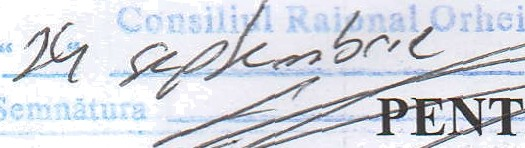 Consiliul Raional Orhei
“ 24 ” septembrie
Semnătura
PENT